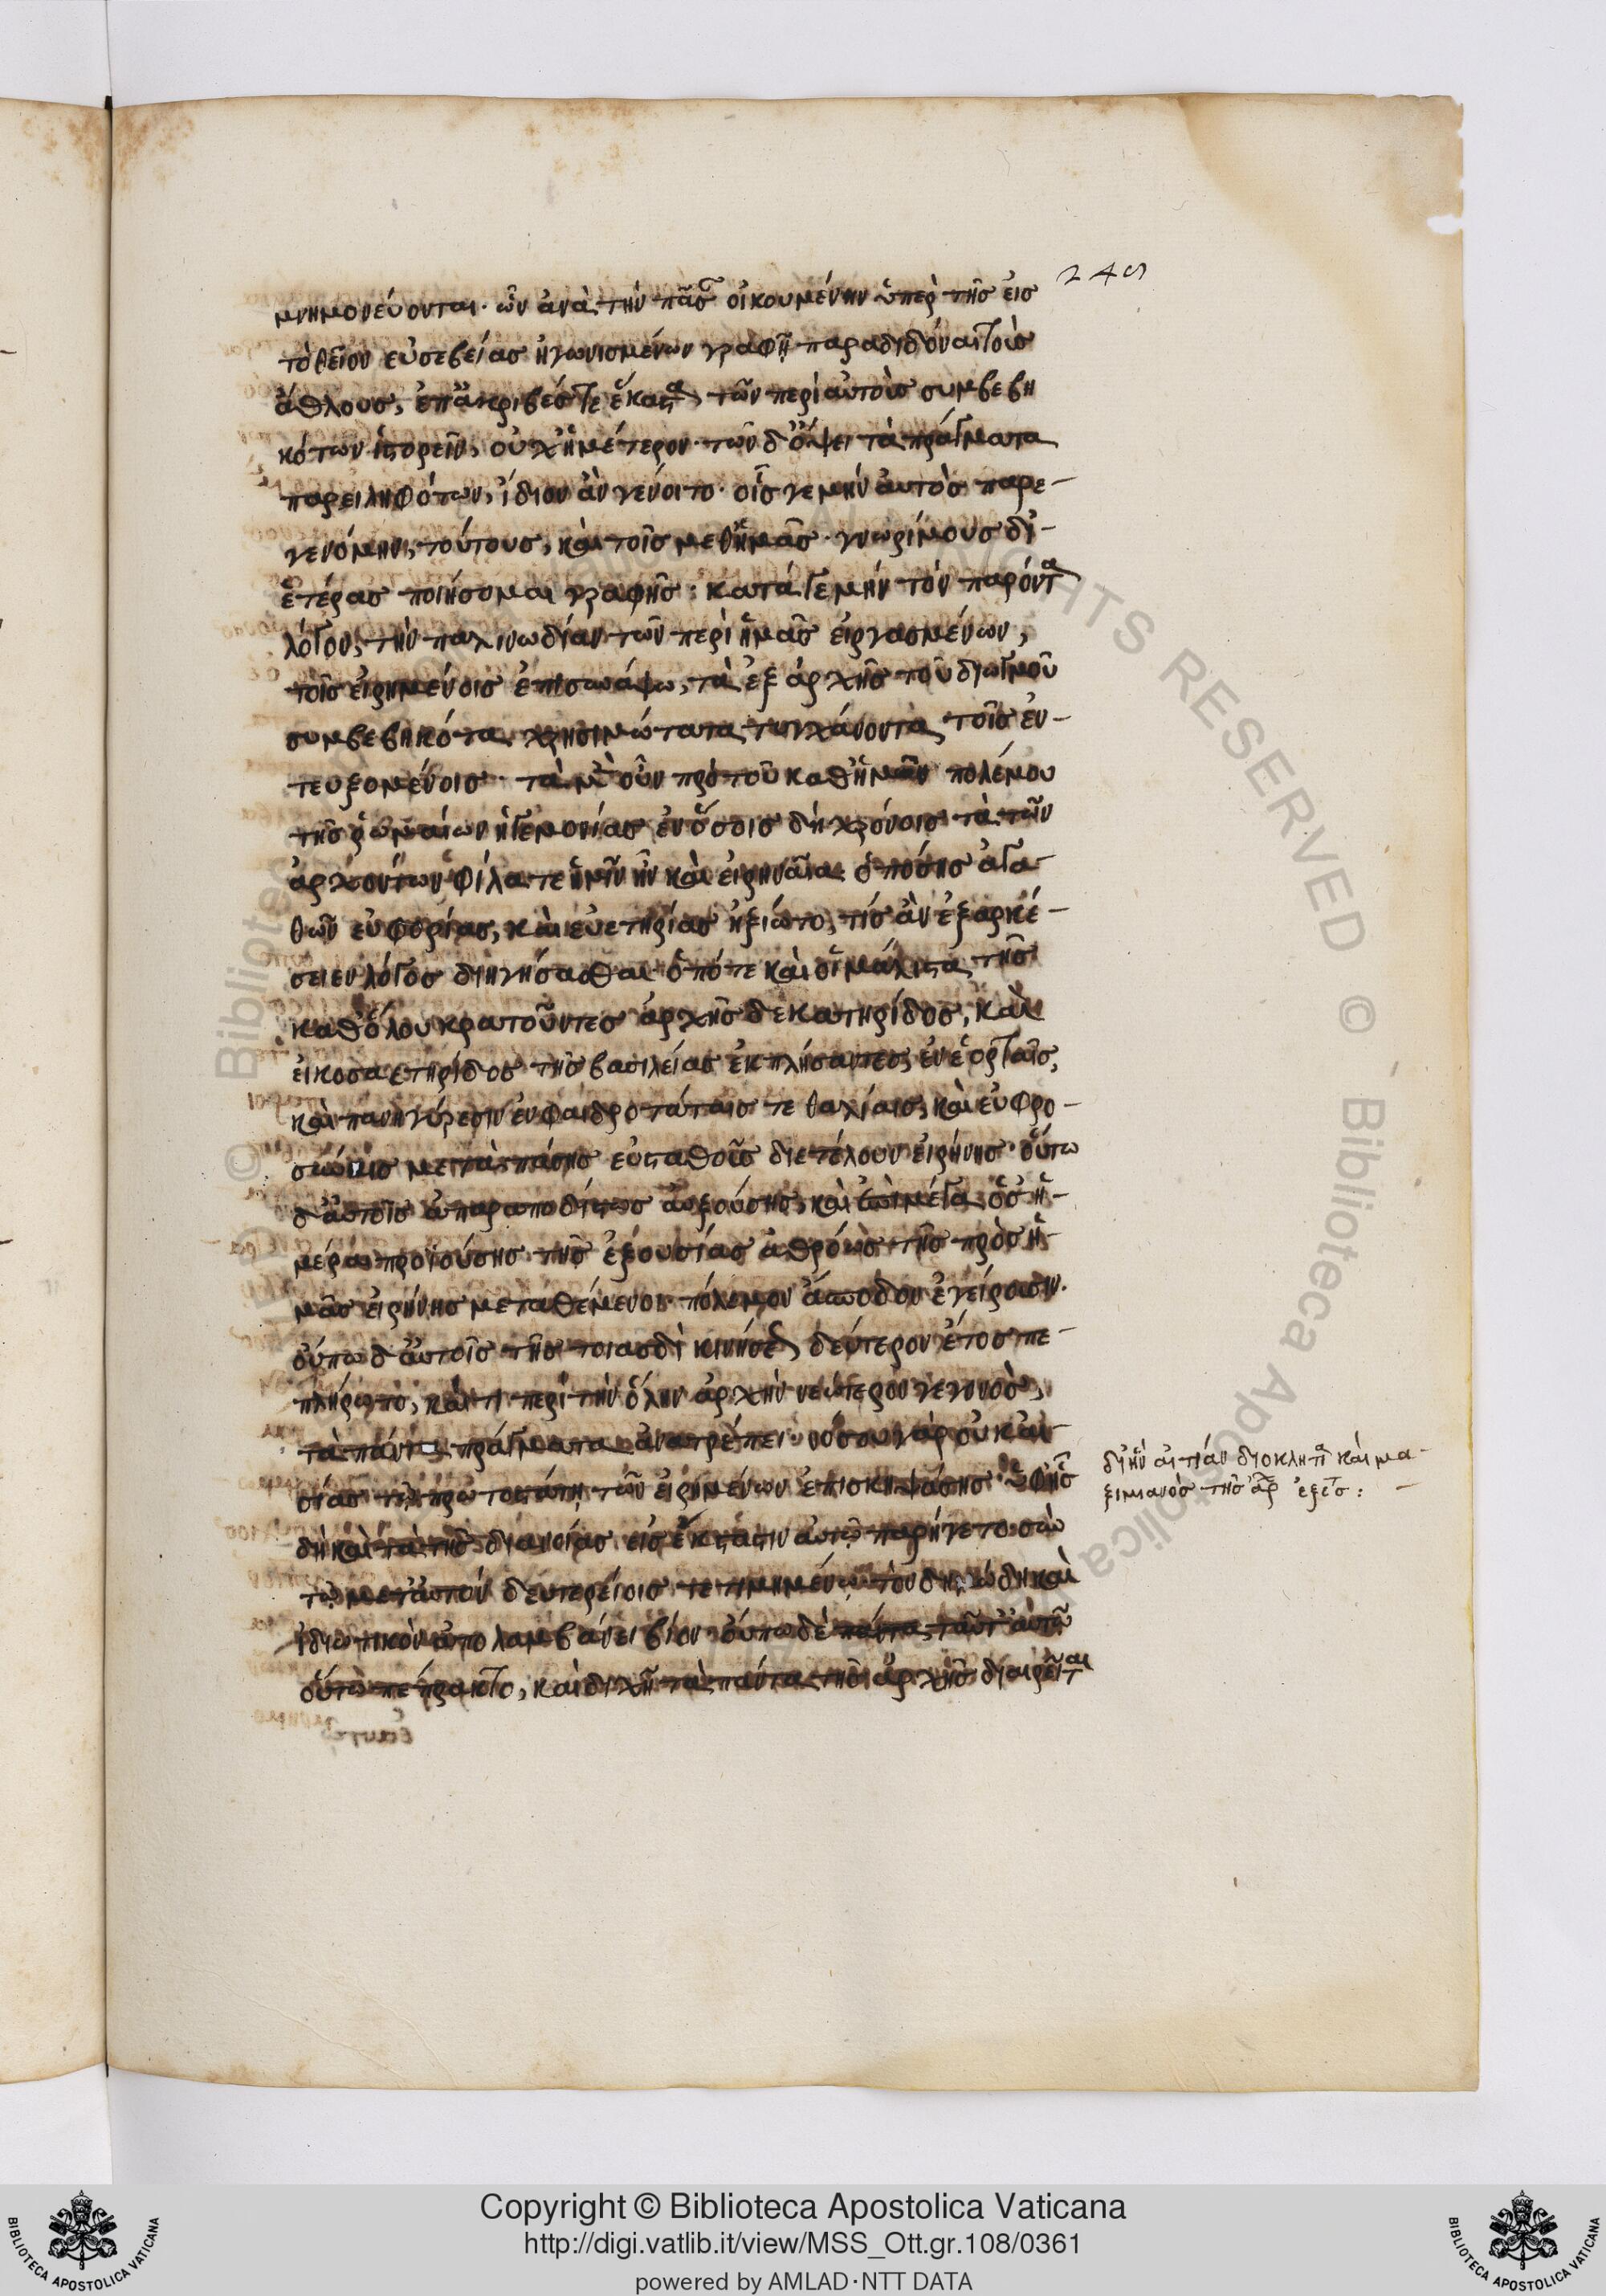 249
μνημονεύονται· ὧν ἀνὰ τὴν πᾶσ οἰκουμένην ὑπὲρ τῆσ εἰσ
τὸ θεῖον εὐσεβείασ ἠγωνισμένων γραφῆ παραδιδόναι τοὺσ
ἄθλουσ, ἐπ' ἀκριβέσ τε ἕκαστα τῶν περὶ αὐτοὺσ συμβεβη
κότων ἱστορεῖν, οὐχ' ἡμέτερον· τῶν δ' ὄψει τὰ πράγματα
παρειληφότων, ἴδιον ἂν γένοιτο· οἷσ γε μὴν αὐτὸσ παρε-
γενόμην, τούτουσ, καὶ τοῖσ μεθ' ἡμᾶσ· γνωρίμουσ δι'-
ἑτέρασ ποιήσομαι γραφῆσ: κατά γε μὴν τὸν παρόντα
λόγον, τὴν παλινωδίαν τῶν περὶ ἡμᾶσ εἰργασμένων,
τοῖσ εἰρημένοισ ἐπισυνάψω, τὰ ἐξ ἀρχῆσ τοῦ διωγμοῦ
συμβεβηκότα χρησιμώτατα τυγχάνοντα τοῖσ ἐν-
τευξομένοισ· τὰ μὲν οὖν πρὸ τοῦ καθ' ἡμῶν πολέμου
τῆσ ῥωμαίων ἡγεμονίασ ἐν ὅσοισ δὴ χρόνοισ τὰ τῶν
ἀρχόντων φίλα τε ἡμῖν ἦν καὶ εἰρηναῖα ὁπόσησ ἀγα-
θῶν εὐφορίασ, καὶ εὐετηρίασ ἠξίωτο, τίσ ἂν ἐξαρκέ-
σειεν λόγοσ διηγήσασθαι ὁπότε καὶ οἱ μάλιστα τῆσ
καθ' ὅλου κρατοῦντεσ ἀρχῆσ δεκαετηρίδοσ, καὶ
εἰκοσαετηρίδοσ τῆσ βασιλείασ ἐκπλήσαντεσ ἐν ἑορταῖσ,
καὶ πανηγύρεσιν ἐν φαιδροτάταισ τε θαλίαισ, καὶ εὐφρο-
σύναισ μετὰ πάσησ εὐσταθοῦσ διετέλουν εἰρήνησ· οὕτω
δ' αὐτοῖσ ἀπαραποδίστωσ αὐξούσησ, καὶ ἐπὶ μέγα ὁσ ἡ-
μέραι προϊούσησ τῆσ ἐξουσίασ ἀθρόωσ τῆσ πρὸσ ἡ-
μᾶσ εἰρήνησ μεταθέμενοι πόλεμον ἄσπονδον ἐγείρουσιν·
οὔπω δ' αὐτοῖσ τῆσ τοιᾶσδὶ κινήσεωσ δεύτερον ἔτοσ πε-
πλήρωτο, καί τι περὶ τὴν ὅλην ἀρχὴν νεώτερον γεγονὸσ,
τὰ πάντα πράγματα ἀνατρέπει· νόσου γὰρ οὐκ αἰ-
σίασ τῷ πρωτοστάτῃ τῶν εἰρημένων ἐπισκηψάσησ ὑφ' ἧσ
δὴ καὶ τὰ τῆσ διανοίασ εἰσ ἔκστασιν αὐτῷ παρήγετο σὺν
τῷ μετ' αὐτὸν δευτερείοισ τετιμημένῳ τὸν δημώδη καὶ
ἰδιωτικὸν ἀπολαμβάνει βίον· οὔπω δὲ πάντα ταῦτ' αὐτῶ
οὕτω πέπρακτο, καὶ διχῆ τὰ πάντα τῆσ ἀρχῆσ διαιρεῖται
δι' ἣν αἰτίαν διοκλητι καὶ μα-
ξιμιανὸσ τῆσ ἀρ ἐξέσ: -
Copyright © Biblioteca Apostolica Vaticana
http://digi.vatlib.it/view/MSS_Ott.gr.108/0361
powered by AMLAD·NTT DATA
BIBLIOTECA APOSTOLICA VATICANA
BIBLIOTECA APOSTOLICA VATICANA